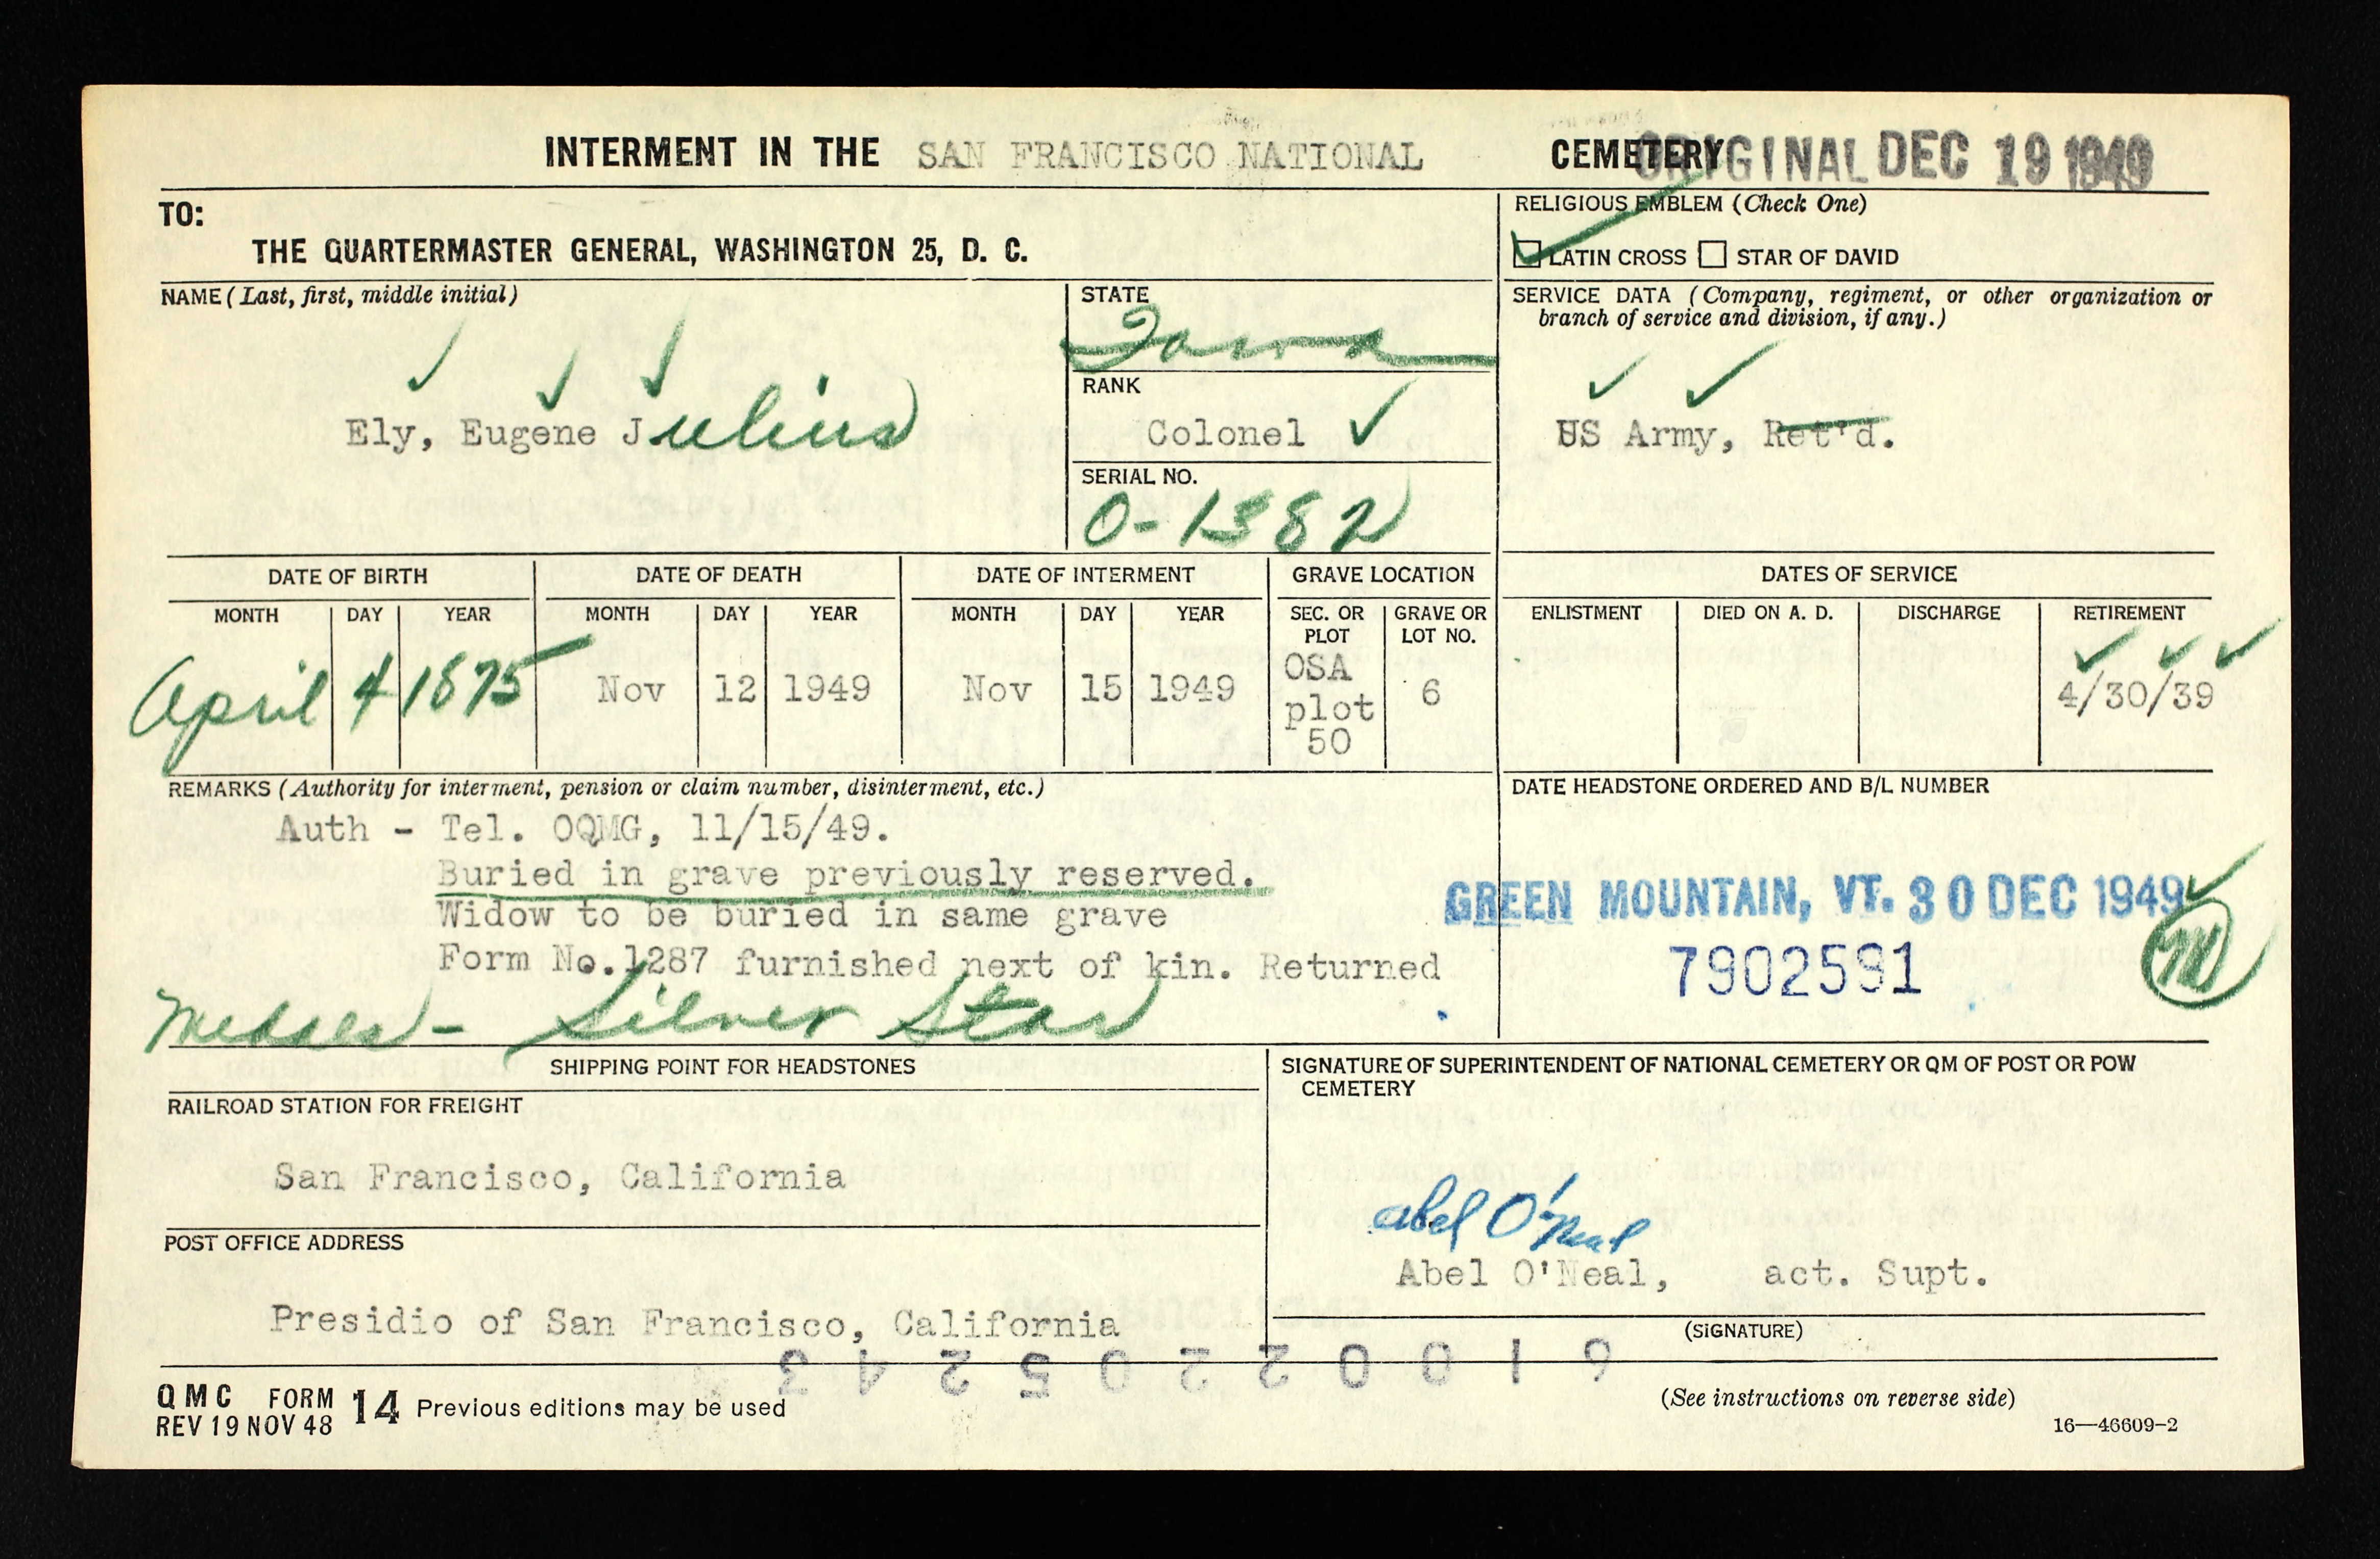 INTERMENT IN THE SAN FRANCISCO NATIONAL CEMETERY ORIGINAL DEC 19 1949
TO:
THE QUARTERMASTER GENERAL, WASHINGTON 25, D. C.
RELIGIOUS EMBLEM (Check One)
LATIN CROSS STAR OF DAVID
NAME (Last, first, middle initial)
Ely, Eugene Julius
STATE
Iowa
RANK
Colonel
SERIAL NO.
O-1382
SERVICE DATA (Company, regiment, or other organization or
branch of service and division, if any.)
US Army, Ret'd.
DATE OF BIRTH DATE OF DEATH DATE OF INTERMENT GRAVE LOCATION DATES OF SERVICE
MONTH DAY YEAR MONTH DAY YEAR MONTH DAY YEAR SEC. OR PLOT GRAVE OR LOT NO. ENLISTMENT DIED ON A. D. DISCHARGE RETIREMENT
April 4 1875 Nov 12 1949 Nov 15 1949 OSA plot 50 6 4/30/39
REMARKS (Authority for interment, pension or claim number, disinterment, etc.)
Auth - Tel. OQMG, 11/15/49.
Buried in grave previously reserved.
Widow to be buried in same grave
Form No.1287 furnished next of kin. Returned
Medals - Silver Star
DATE HEADSTONE ORDERED AND B/L NUMBER
GREEN MOUNTAIN, VT. 30 DEC 1949
7902591
SHIPPING POINT FOR HEADSTONES
RAILROAD STATION FOR FREIGHT
San Francisco, California
POST OFFICE ADDRESS
Presidio of San Francisco, California
SIGNATURE OF SUPERINTENDENT OF NATIONAL CEMETERY OR QM OF POST OR POW
CEMETERY
Abel O'Neal
Abel O'Neal, act. Supt.
(SIGNATURE)
61002205243
QMC FORM 14 Previous editions may be used
REV 19 NOV 48
(See instructions on reverse side)
16—46609-2